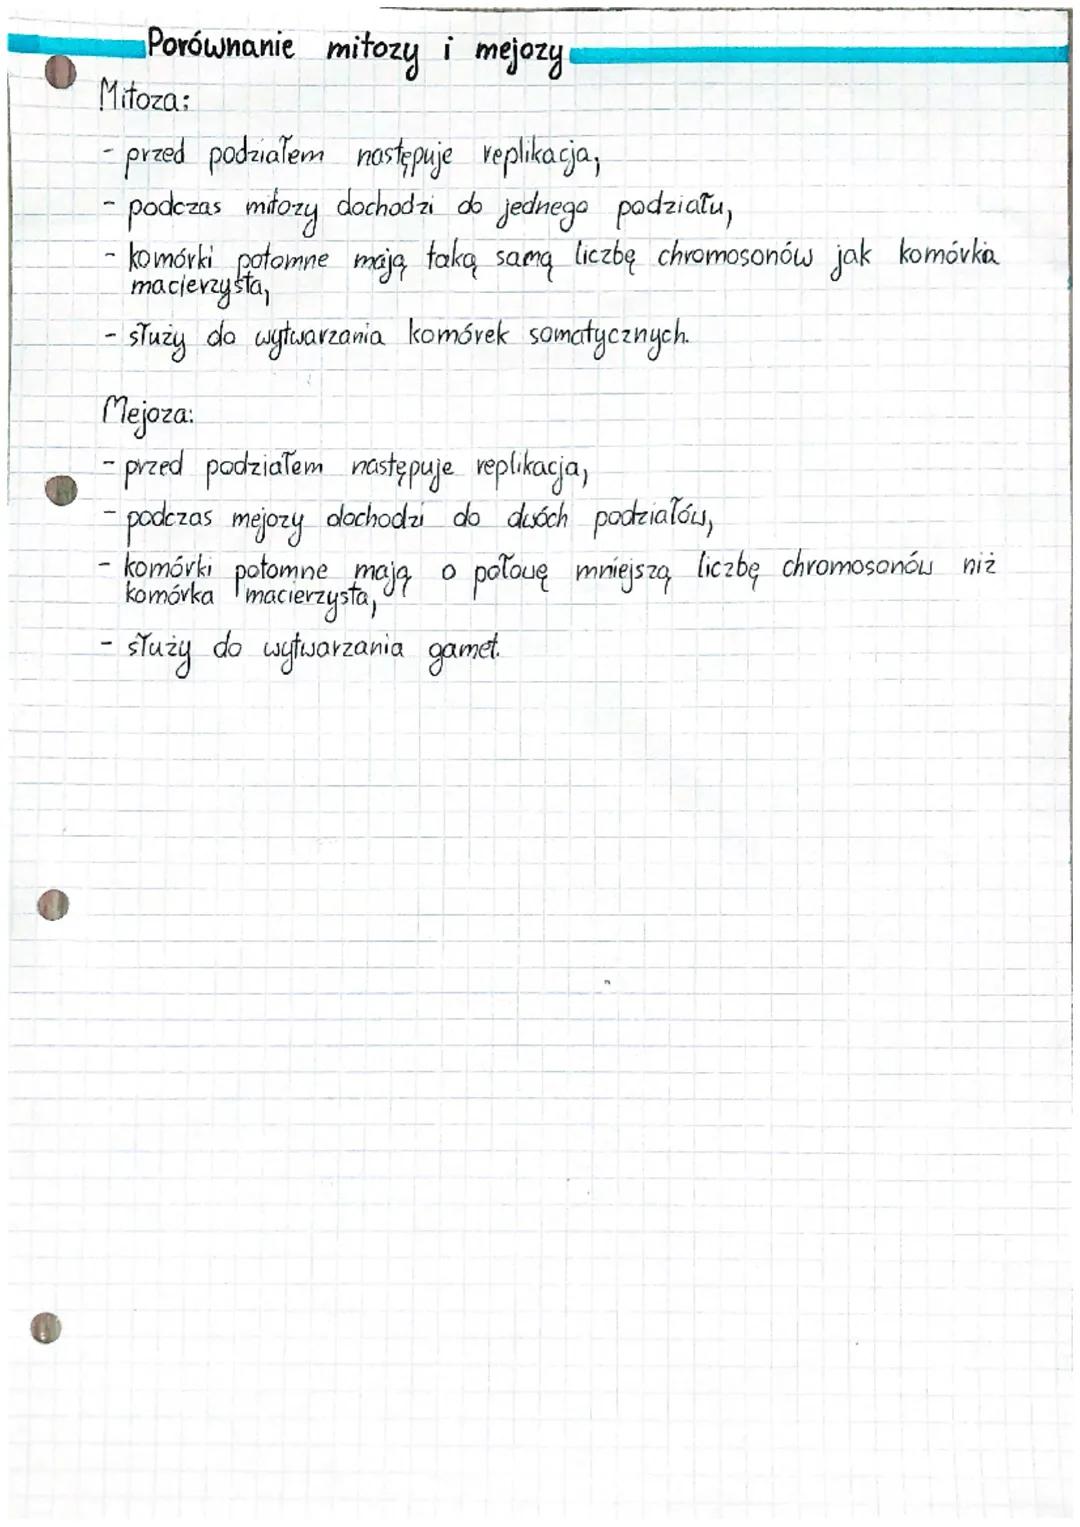 Porównanie mitozy i mejozy
Mitoza:
- przed podziałem następuje replikacja,
- podczas mitozy dochodzi do jednego podziału,
- komórki potomne mają taką samą liczbę chromosonów jak komórka
macierzysta,
- służy do wytwarzania komórek somatycznych.
Mejoza:
- przed podziałem następuje replikacja,
- podczas mejozy dochodzi do dwóch podziałów,
- komórki potomne mają o połowę mniejszą liczbę chromosonów niż
komórka macierzysta,
- służy do wytwarzania gamet.